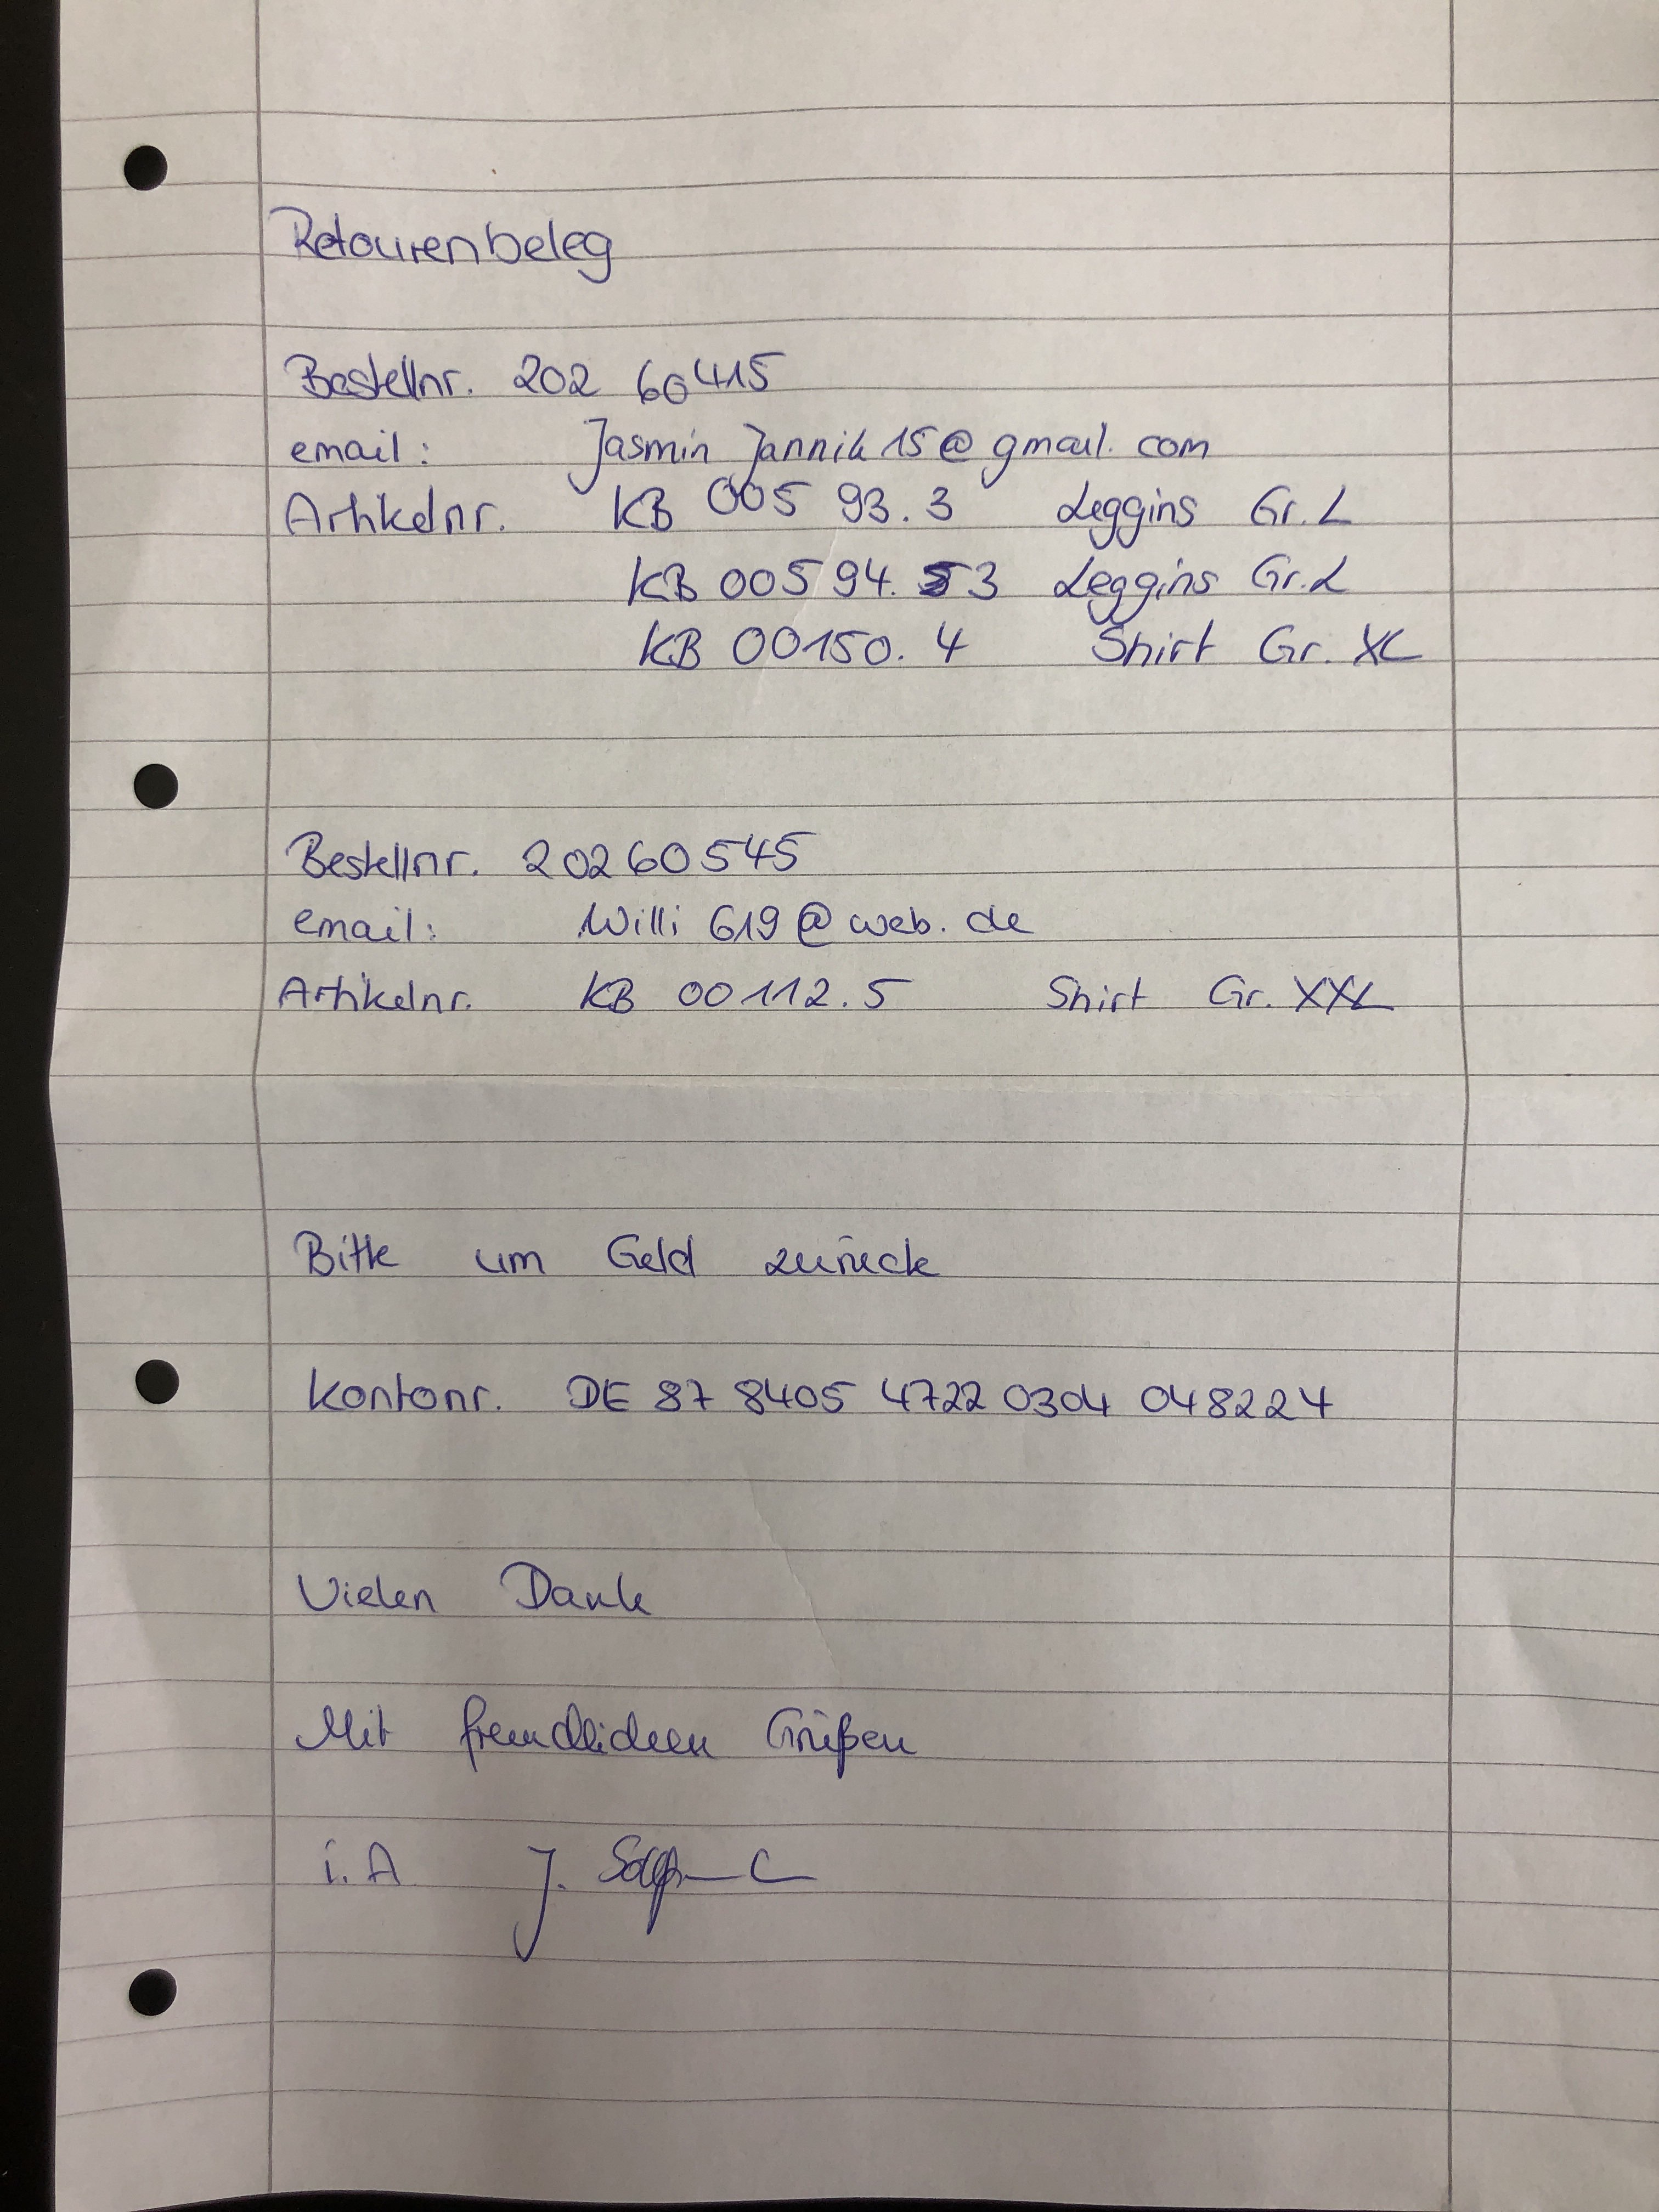 Retourenbeleg
Bestellnr. 202 60415
email: JasminJannik15@gmail.com
Artikelnr. KB 005 93.3 Leggins Gr. L
KB 00594. 3 Leggins Gr. L
KB 00150.4 Shirt Gr. XL
Bestellnr. 20260545
email: Willi619@web.de
Artikelnr. KB 00112.5 Shirt Gr. XXL
Bitte um Geld zurück
Kontonr. DE 87 8405 4722 0304 048224
Vielen Dank
Mit freundlichen Grüßen
i.A J.